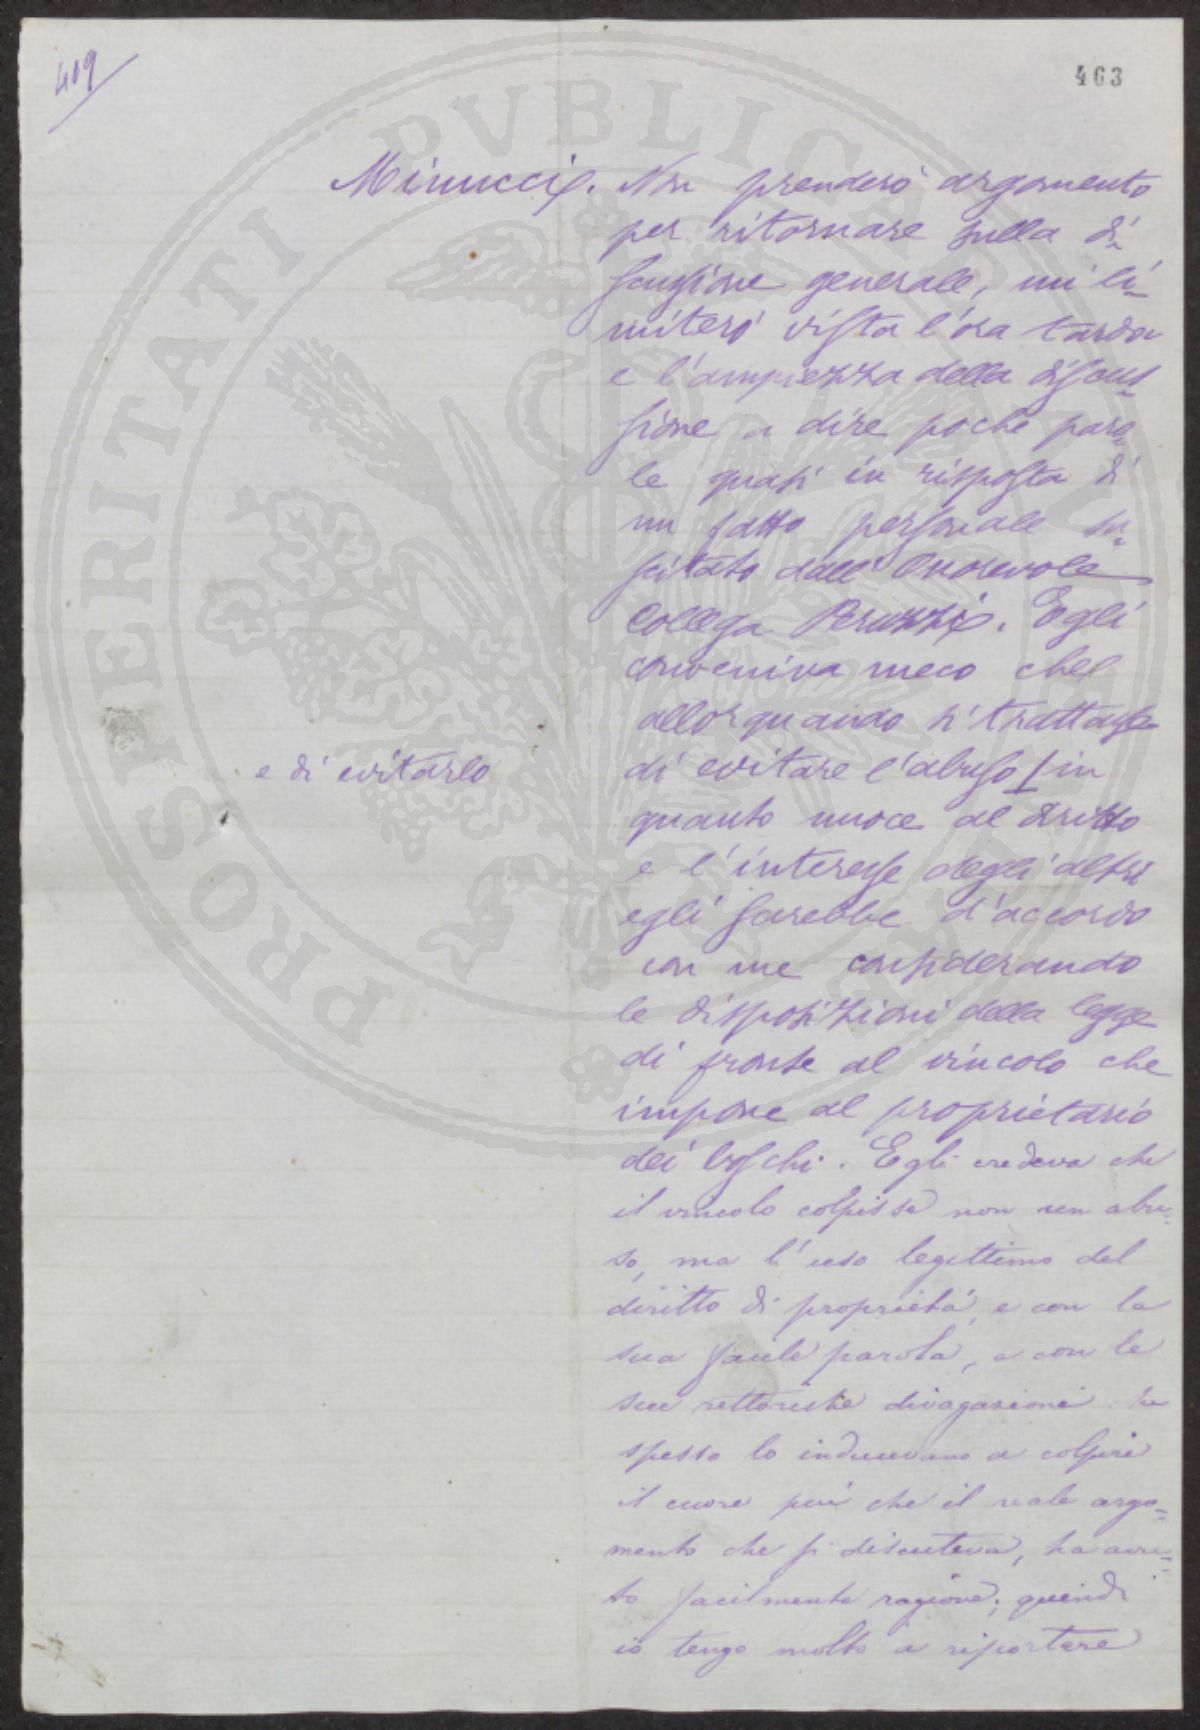 409
463
Minucci. Non prenderò argomento
per ritornare sulla di-
scussione generale, mi li-
miterò vista l'ora tarda
e l'ampiezza della discus-
sione a dire poche paro-
le quasi in risposta di
un fatto personale su-
scitato dall'Onorevole
Collega Peruzzi. Egli
conveniva meco che
allorquando si trattasse
e di evitarlo
di evitare l'abuso / in
quanto nuoce al dritto
e l'interesse degli altri
egli sarebbe d'accordo
con me considerando
le disposizioni della legge
di fronte al vincolo che
impone al proprietario
dei boschi. Egli credeva che
il vincolo colpisse non un abu-
so, ma l'uso legittimo del
diritto di proprietà, e con la
sua facile parola, e con le
sue rettoriche divagazioni che
spesso lo inducevano a colpire
il cuore più che il reale argo-
mento che si discuteva, ha avu-
to facilmente ragione; quindi
io tengo molto a riportare
PROSPERITATI PVBLICAE